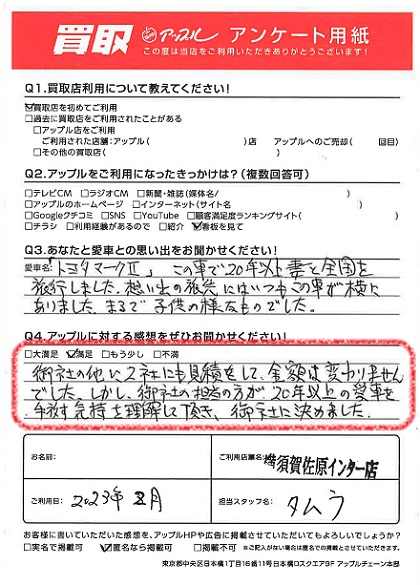 買取 アップル アンケート用紙
この度は当店をご利用いただきありがとうございます!
Q1.買取店利用について教えてください!
☑買取店を初めてご利用
□過去に買取店をご利用されたことがある
□アップル店をご利用
ご利用された店舗:アップル( )店 アップルへのご売却( 回目)
□その他の買取店( )
Q2.アップルをご利用になったきっかけは?(複数回答可)
□テレビCM □ラジオCM □新聞・雑誌(媒体名/ )
□アップルのホームページ □インターネット(サイト名 )
□Googleクチコミ □SNS □YouTube □顧客満足度ランキングサイト( )
□チラシ □利用経験があるので □紹介 ☑看板を見て
Q3.あなたと愛車との思い出をお聞かせください!
愛車名「トヨタマークⅡ」 この車で20年以上妻と全国を
旅行しました。想い出の旅先にはいつもこの車が横に
ありました。まるで子供の様なものでした。
Q4.アップルに対する感想をぜひお聞かせください!
□大満足 ☑満足 □もう少し □不満
御社の他に2社にも見積をして、金額は変わりません
でした。しかし、御社の担当の方が、20年以上の愛車を
手放す気持を理解して頂き、御社に決めました。
お名前:
ご利用店舗名: 横須賀佐原インター店
ご利用日: 2023年 2月
担当スタッフ名: タムラ
お客様に書いていただいた感想を、アップルHPや広告に掲載させていただいてもよろしいでしょうか?
□実名で掲載可 ☑匿名なら掲載可 □掲載不可 ※ご記入がない場合は匿名での掲載とさせていただきます。
東京都中央区日本橋1丁目16番11号日本橋Dスクエア9F アップルチェーン本部